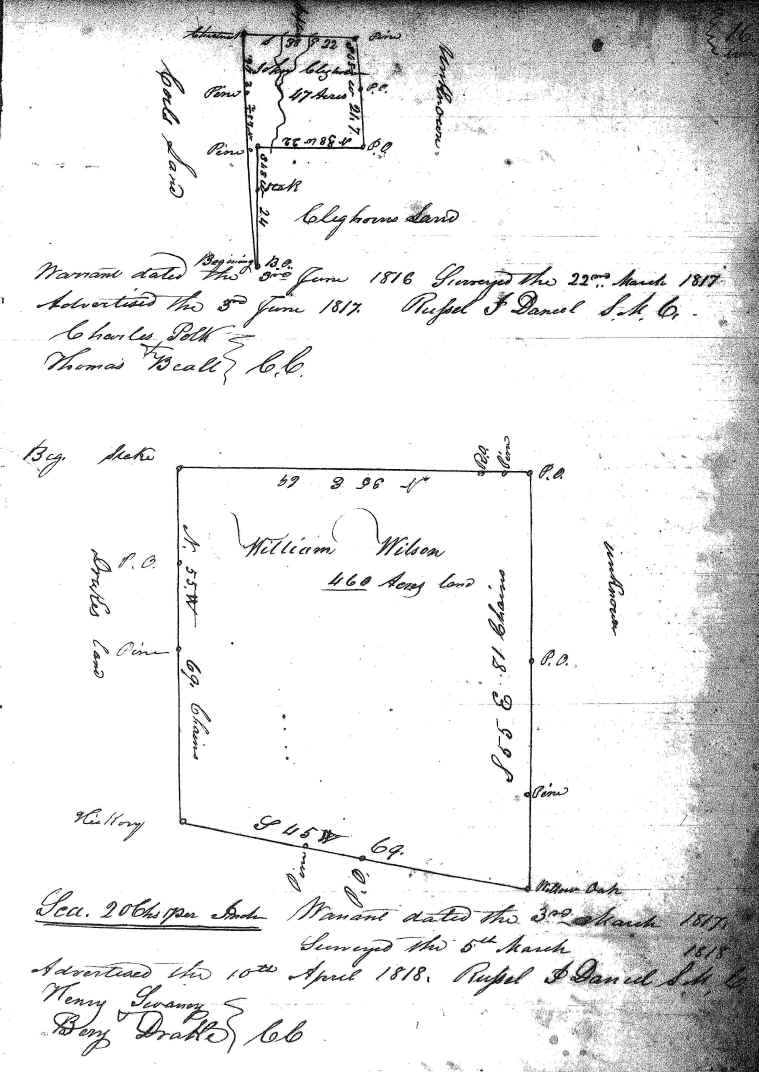 Pine
John Cleghorn
47 Acres
Pine
P.O.
Unknown
Land
Pine
P.O.
N 38 W 22
Stak
24
Cleghorns Land
Begining
B.O.
Warrant dated the 3rd June 1816 Surveyed the 22nd March 1817
Advertised the 3rd June 1817. Russel J Daniel S.M.C.
Charles Polk
Thomas Beall } C.C.
Beg. Stake
P.O
Pine
P.O.
N 35 E 69
William Wilson
460 Acres land
Drakes land
P.O.
Pine
N. 55. W 69. Chains
S 55 E 81 Chains
unknown
P.O.
Pine
Hickory
S 45 W 69.
Pine
P.O
Willow Oak
Sca. 20 Chs per Inch
Warrant dated the 3rd March 1817.
Surveyed the 5th March 1818
Advertised the 10th April 1818. Russel J Daniel S.M.C.
Henry Swanny
&
Bery Drake } CC